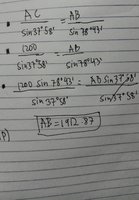 AC / sin37°58' = AB / sin 78°43'
1200 / sin37°58' = AB / sin 78°43'
1200 sin 78°43' / sin37°58' = AB sin37°58' / sin37°58'
AB = 1912.87